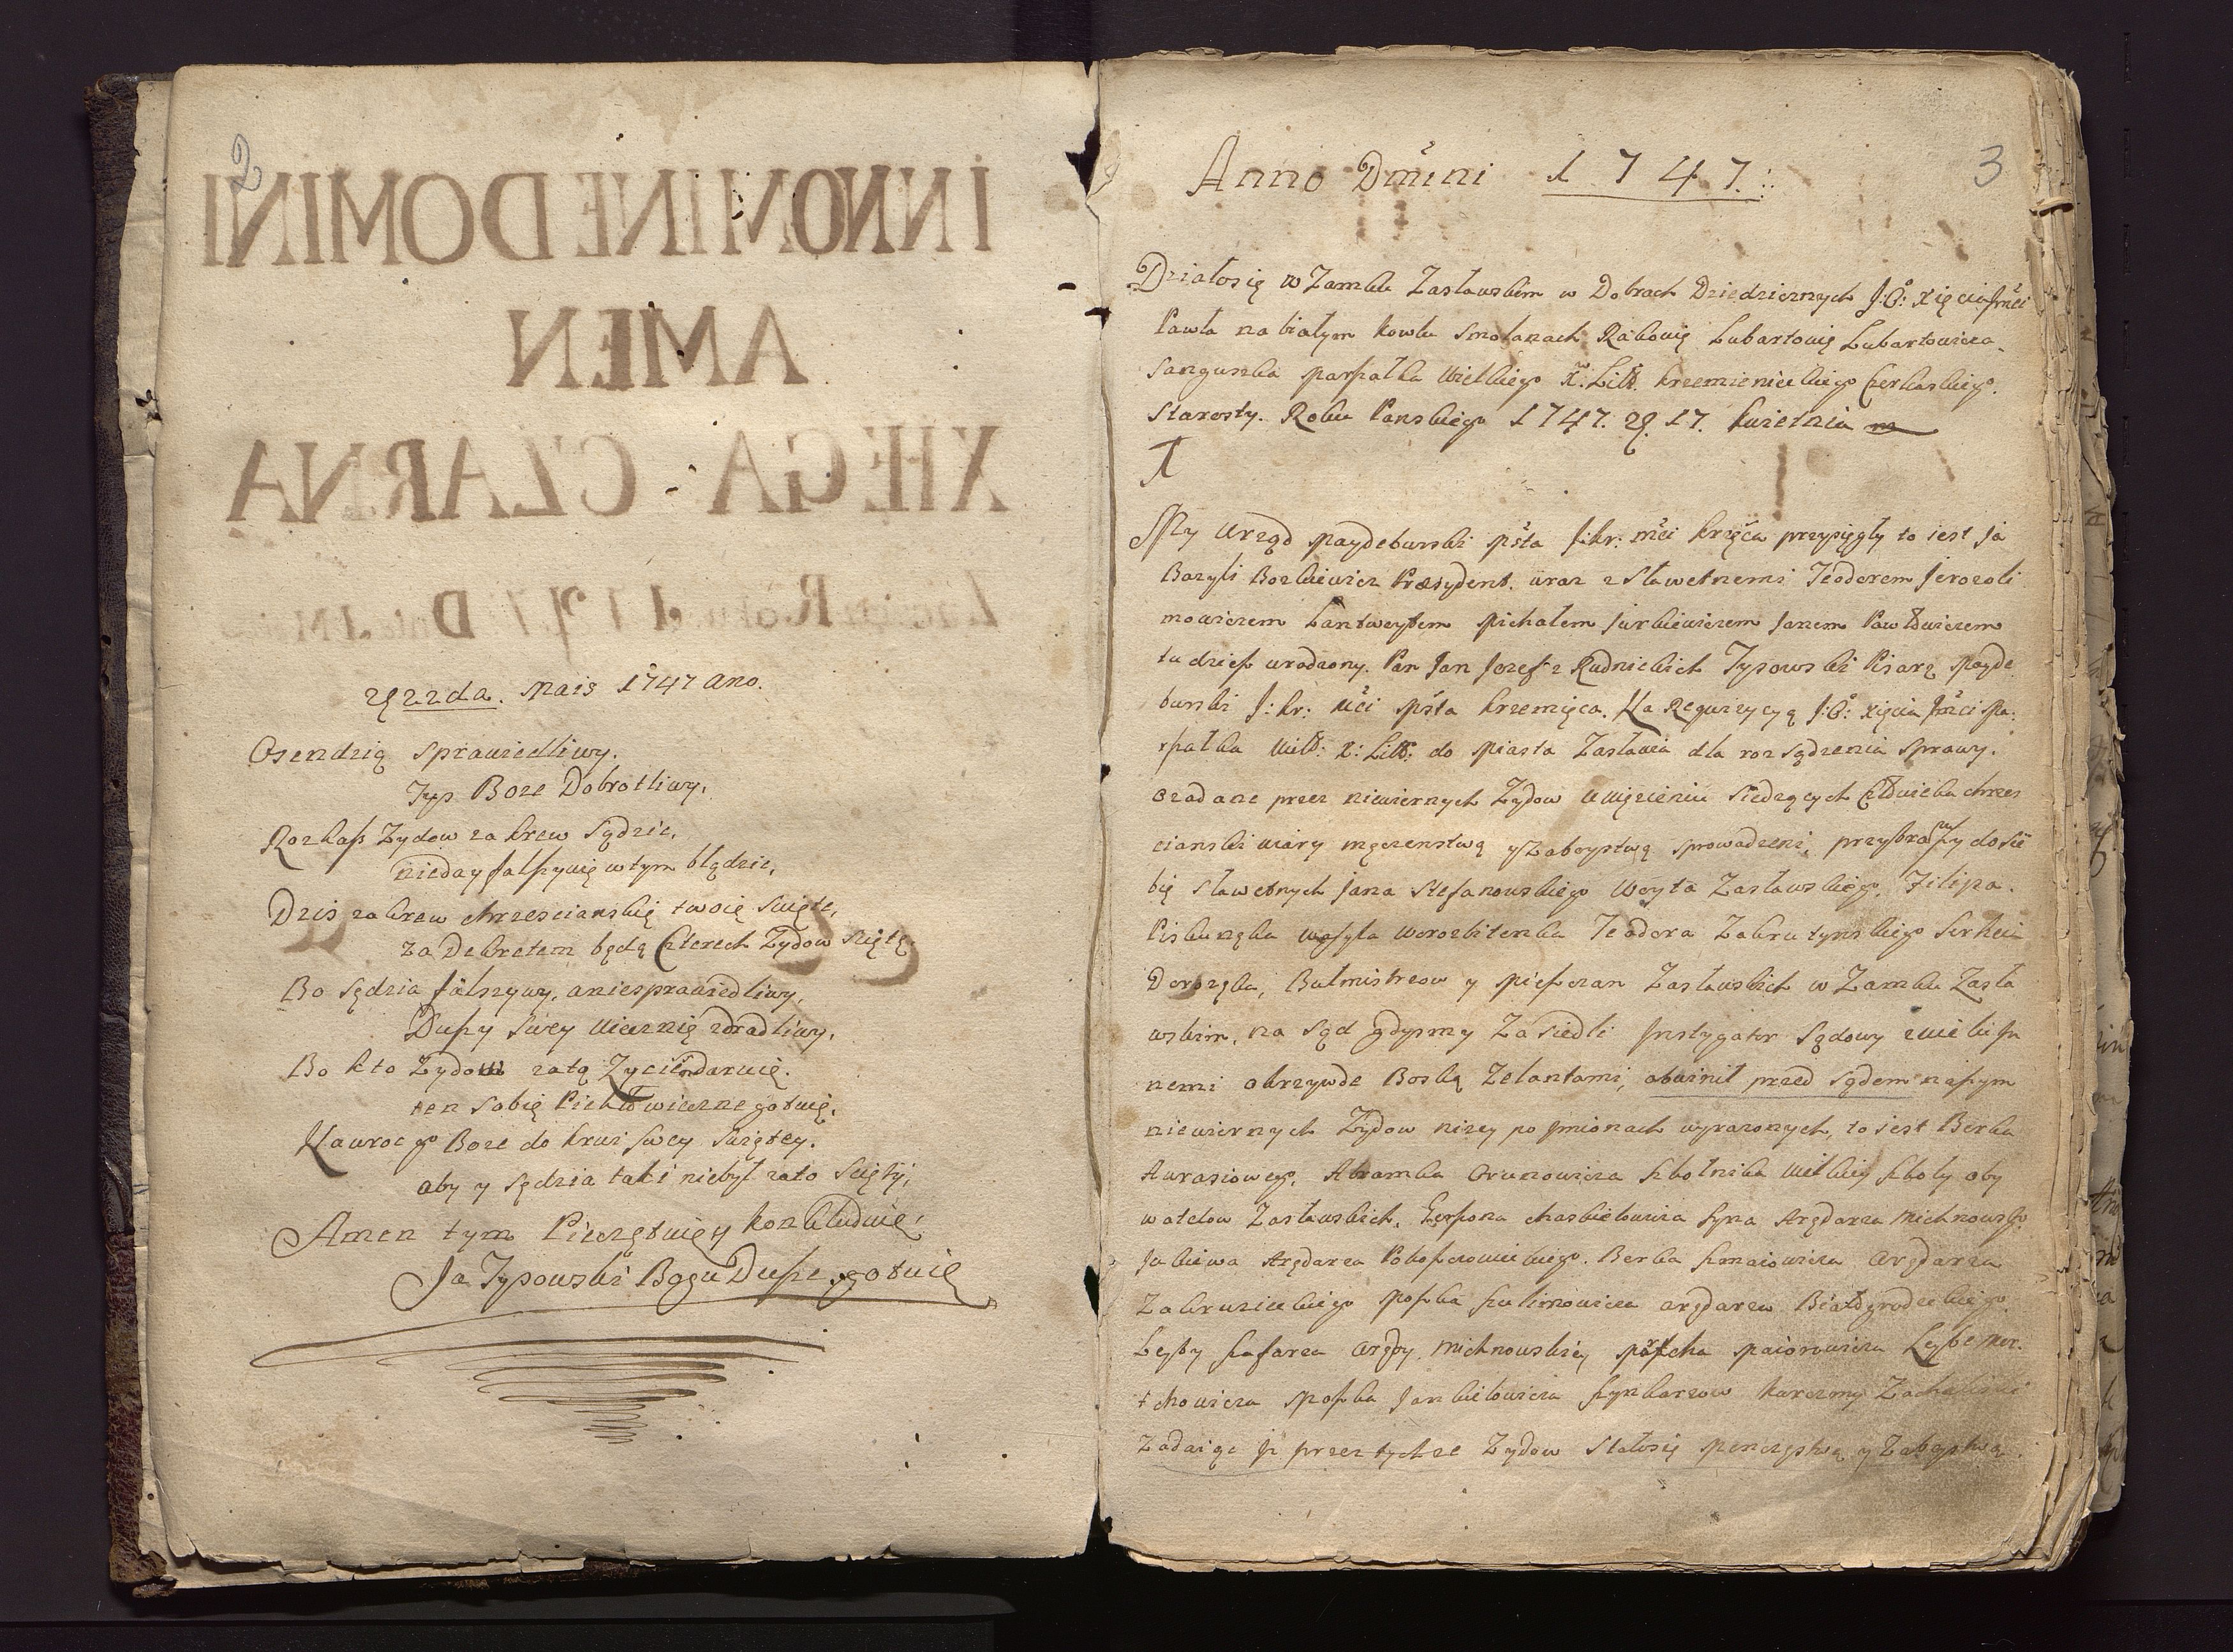 2
IN NOMINE DOMINI
AMEN
XIEGA CZARNA
Roku 1747 D
22da. Mais 1747 Ano.
Osendzią sprawiedliwy.
Jys Boze Dobrotliwy,
Rozkaß Zydow za krew sądzic,
nieday falszywię w tym błądzic,
Dzis za krew chrzescianskię twoię swięte,
za Dekretem będą Czterech Zydow scięte.
Bo sędzia falszywy, a niesprawiedliwy,
Duszy swey wiecznię zdradliwy,
Bo kto Zydow za tą Zyciem daruię.
ten sobię Piekło wieczne gotuię,
Nawroc go Boze do krwi swey swiętey.
aby y sędzia taki niebył za to scięty,
Amen tym Pieczętuię y konkluduię,
Ja Tyszowski Bogu Duszę gotuię
3
Anno Dmini 1747.
Działosię w Zamku Zasławskim w Dobrach Dziedzicznych J: O: Xięcia Jmci
Pawła na białym Kowlu Smolanach Rakowię Lubartowię Lubartowicza
Sanguszka Marszałka Wielkiego X. Litt. krzemienieckiego Czerkaskiego.
Starosty. Roku Panskiego 1747. 17. kwietnia
My Urząd Maydeburski Msta J: kr: mci krzęca przysięgły to iest Ja
Bazyli Bozkiewicz Præsydent. wraz z Sławetnemi Teodorem Jerozoli
mowiczem Lantweytem Michałem Jurkiewiczem Janem Pawłowiczem
tudziesz urodzony. Pan Jan Jozef z Rudnickich Tyszowski Pisarz Mayde
burski J: kr: Mci Msta krzemięca. Na Requizycyą J: O: Xięcia Jmci Ma:
rszałka Wiel: X: Litt: do Miasta Zasławia dla rozsądzenia sprawy.
o zadane przez niewiernych Zydow w więzieniu siedzących Człowieka chrzes
cianski wiary męczenstwą y Zaboystwą sprowadzeni, przybrawszy do sie
bię sławetnych Jana Stefanowskiego Woyta Zasławskiego, Filipa.
Piskunęka Wasyla Worozbitenka Teodora Zakrutynskiego
Dorozęka, Butmistrzow y Mieszczan Zasławskich w Zamku Zasła
wskim, na sąd gdysmy Zasiedli Instygator Sądowy z wielu In
nemi o krzywdę Boską Zelantami, obwinił przed sądem naszym
niewiernych Zydow nizey po Jmionach wyrazonych, to iest Berka
Awrasiowego, Abramka Orunowicza szkolnika wielkiey szkoły oby
watelow Zasławskich, Gerszona chaskielowicza syna Arędarza Michnowsko
Jukiewa Arędarza Berka Szmaiowicza Arędarza
Moszka arędarza Białogrodeckiego
Leyby Szafarza Arędy Michnowskiey Leybe Mor.
tchowicza Moszka Jankielowicza szynkarzow karczmy
Zadaiąc Jż przez tychze Zydow stałosię Menczęstwą y Zaboystwą